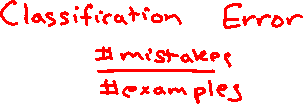 Classification Error
#mistakes
#examples